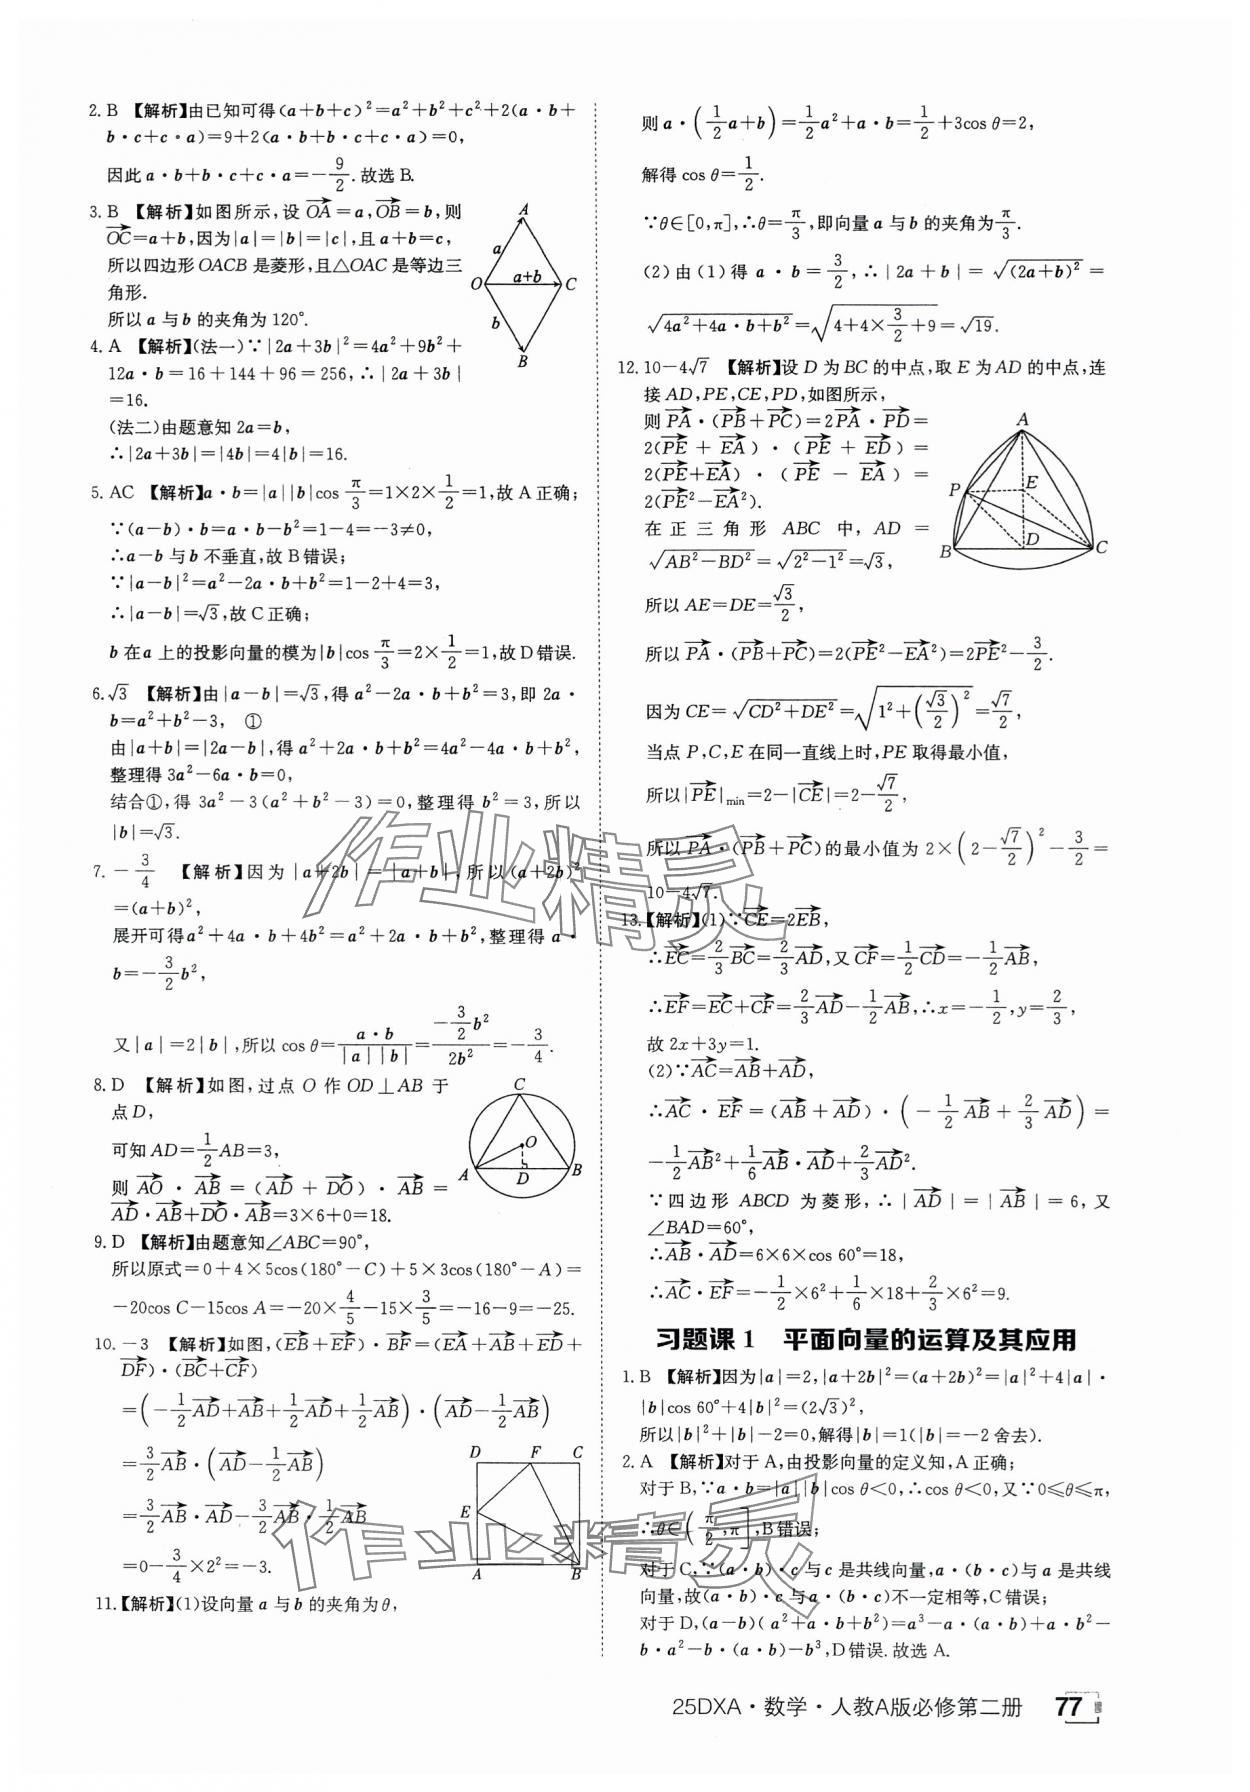 2. B 【解析】由已知可得(a+b+c)²=a²+b²+c²+2(a·b+
b·c+c·a)=9+2(a·b+b·c+c·a)=0,
因此 a·b+b·c+c·a=-9/2.故选B.
3. B 【解析】如图所示,设OA→=a,OB→=b,则
OC→=a+b,因为|a|=|b|=|c|,且a+b=c,
所以四边形OACB是菱形,且△OAC是等边三
角形.
所以a与b的夹角为120°.
A
a
O
a+b
C
b
B
4. A 【解析】(法一)∵|2a+3b|²=4a²+9b²+
12a·b=16+144+96=256,∴|2a+3b|
=16.
(法二)由题意知2a=b,
∴|2a+3b|=|4b|=4|b|=16.
5. AC 【解析】a·b=|a||b|cos π/3=1×2×1/2=1,故A正确;
∵(a-b)·b=a·b-b²=1-4=-3≠0,
∴a-b与b不垂直,故B错误;
∵|a-b|²=a²-2a·b+b²=1-2+4=3,
∴|a-b|=√3,故C正确;
b在a上的投影向量的模为|b|cos π/3=2×1/2=1,故D错误.
6. √3 【解析】由|a-b|=√3,得a²-2a·b+b²=3,即2a·
b=a²+b²-3, ①
由|a+b|=|2a-b|,得a²+2a·b+b²=4a²-4a·b+b²,
整理得3a²-6a·b=0,
结合①,得3a²-3(a²+b²-3)=0,整理得b²=3,所以
|b|=√3.
7. -3/4 【解析】因为|a+2b|=|a+b|,所以(a+2b)²
=(a+b)²,
展开可得a²+4a·b+4b²=a²+2a·b+b²,整理得a·
b=-3/2b²,
又|a|=2|b|,所以cos θ=a·b/|a||b|=-3/2b²/2b²=-3/4.
8. D 【解析】如图,过点O作OD⊥AB于
点D,
可知AD=1/2AB=3,
则AO→·AB→=(AD→+DO→)·AB→=
AD→·AB→+DO→·AB→=3×6+0=18.
C
O
A
D
B
9. D 【解析】由题意知∠ABC=90°,
所以原式=0+4×5cos(180°-C)+5×3cos(180°-A)=
-20cos C-15cos A=-20×4/5-15×3/5=-16-9=-25.
10. -3 【解析】如图,(EB→+EF→)·BF→=(EA→+AB→+ED→+
DF→)·(BC→+CF→)
=(-1/2AD→+AB→+1/2AD→+1/2AB→)·(AD→-1/2AB→)
=3/2AB→·(AD→-1/2AB→)
=3/2AB→·AD→-3/2AB→·1/2AB→
=0-3/4×2²=-3.
D F C
E
A B
11.【解析】(1)设向量a与b的夹角为θ,
则a·(1/2a+b)=1/2a²+a·b=1/2+3cos θ=2,
解得cos θ=1/2.
∵θ∈[0,π],∴θ=π/3,即向量a与b的夹角为π/3.
(2)由(1)得a·b=3/2,∴|2a+b|=√(2a+b)²=
√4a²+4a·b+b²=√4+4×3/2+9=√19.
12. 10-4√7 【解析】设D为BC的中点,取E为AD的中点,连
接AD,PE,CE,PD,如图所示,
则PA→·(PB→+PC→)=2PA→·PD→=
2(PE→+EA→)·(PE→+ED→)=
2(PE→+EA→)·(PE→-EA→)=
2(PE→²-EA→²).
在正三角形ABC中,AD=
√AB²-BD²=√2²-1²=√3,
所以AE=DE=√3/2,
A
P
E
B
D
C
所以PA→·(PB→+PC→)=2(PE→²-EA→²)=2PE→²-3/2.
因为CE=√CD²+DE²=√1²+(√3/2)²=√7/2,
当点P,C,E在同一直线上时,PE取得最小值,
所以|PE→|min=2-|CE→|=2-√7/2,
所以PA→·(PB→+PC→)的最小值为2×(2-√7/2)²-3/2=
10-4√7.
13.【解析】(1)∵CE→=2EB→,
∴EC→=2/3BC→=2/3AD→,又CF→=1/2CD→=-1/2AB→,
∴EF→=EC→+CF→=2/3AD→-1/2AB→,∴x=-1/2,y=2/3,
故2x+3y=1.
(2)∵AC→=AB→+AD→,
∴AC→·EF→=(AB→+AD→)·(-1/2AB→+2/3AD→)=
-1/2AB→²+1/6AB→·AD→+2/3AD→².
∵四边形ABCD为菱形,∴|AD→|=|AB→|=6,又
∠BAD=60°,
∴AB→·AD→=6×6×cos 60°=18,
∴AC→·EF→=-1/2×6²+1/6×18+2/3×6²=9.
习题课1 平面向量的运算及其应用
1. B 【解析】因为|a|=2,|a+2b|²=(a+2b)²=|a|²+4|a|·
|b|cos 60°+4|b|²=(2√3)²,
所以|b|²+|b|-2=0,解得|b|=1(|b|=-2舍去).
2. A 【解析】对于A,由投影向量的定义知,A正确;
对于B,∵a·b=|a||b|cos θ<0,∴cos θ<0,又∵0≤θ≤π,
∴θ∈(π/2,π],B错误;
对于C,∵(a·b)·c与c是共线向量,a·(b·c)与a是共线
向量,故(a·b)·c与a·(b·c)不一定相等,C错误;
对于D,(a-b)(a²+a·b+b²)=a³-a·(a·b)+a·b²-
b·a²-b·(a·b)-b³,D错误.故选A.
作业精灵
作业精灵
25DXA·数学·人教A版必修第二册 77